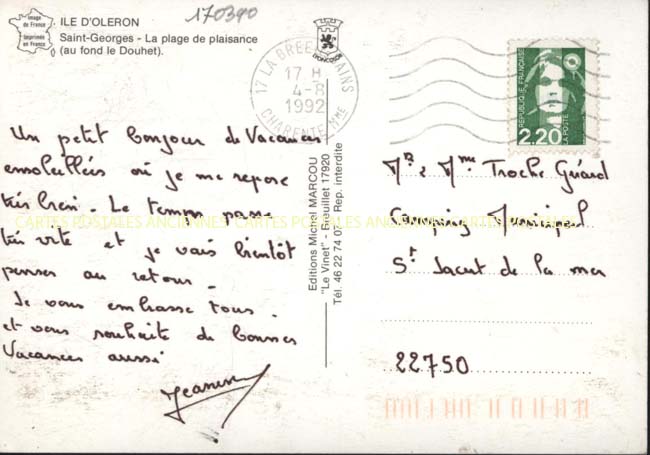 170390
Image
de France
Imprimée
en France
ILE D'OLERON
Saint-Georges - La plage de plaisance
(au fond le Douhet).
YVONCOLOR
17 LA BREE BAINS
17 H
4-8
1992
CHARENTE MME
REPUBLIQUE FRANÇAISE
2,20
LA POSTE
Un petit bonjour de Vacances
ensoleillées où je me repose
très bien. Le temps passe
très vite et je vais bientôt
penser au retour.
Je vous embrasse tous.
et vous souhaite de bonnes
Vacances aussi
Jeanine
Editions Michel MARCOU
"Le Vinet" - Breuillet 17920
Tél. 46 22 74 07 - Rep. interdite
Mr & Mme Troche Guard
Camping Municipal
St Jacut de la mer
22750
CARTES POSTALES ANCIENNES CARTES POSTALES ANCIENNES CARTES POSTALES